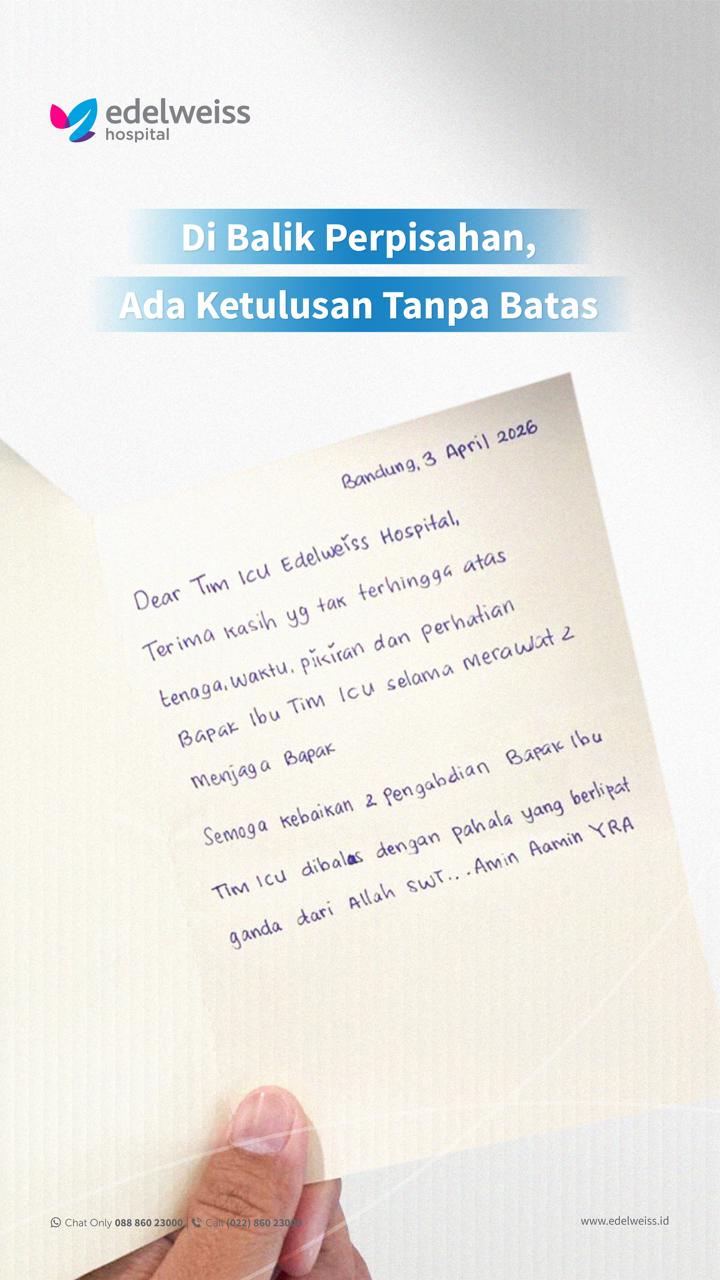 edelweiss
hospital
Di Balik Perpisahan,
Ada Ketulusan Tanpa Batas
Bandung, 3 April 2026
Dear Tim ICU Edelweiss Hospital,
Terima kasih yg tak terhingga atas
tenaga, waktu, pikiran dan perhatian
Bapak Ibu Tim ICU selama merawat 2
menjaga Bapak
Semoga kebaikan 2 pengabdian Bapak Ibu
Tim ICU dibalas dengan pahala yang berlipat
ganda dari Allah SWT... Amin Aamin YRA
Chat Only 088 860 23000 | Call (022) 860 23000
www.edelweiss.id